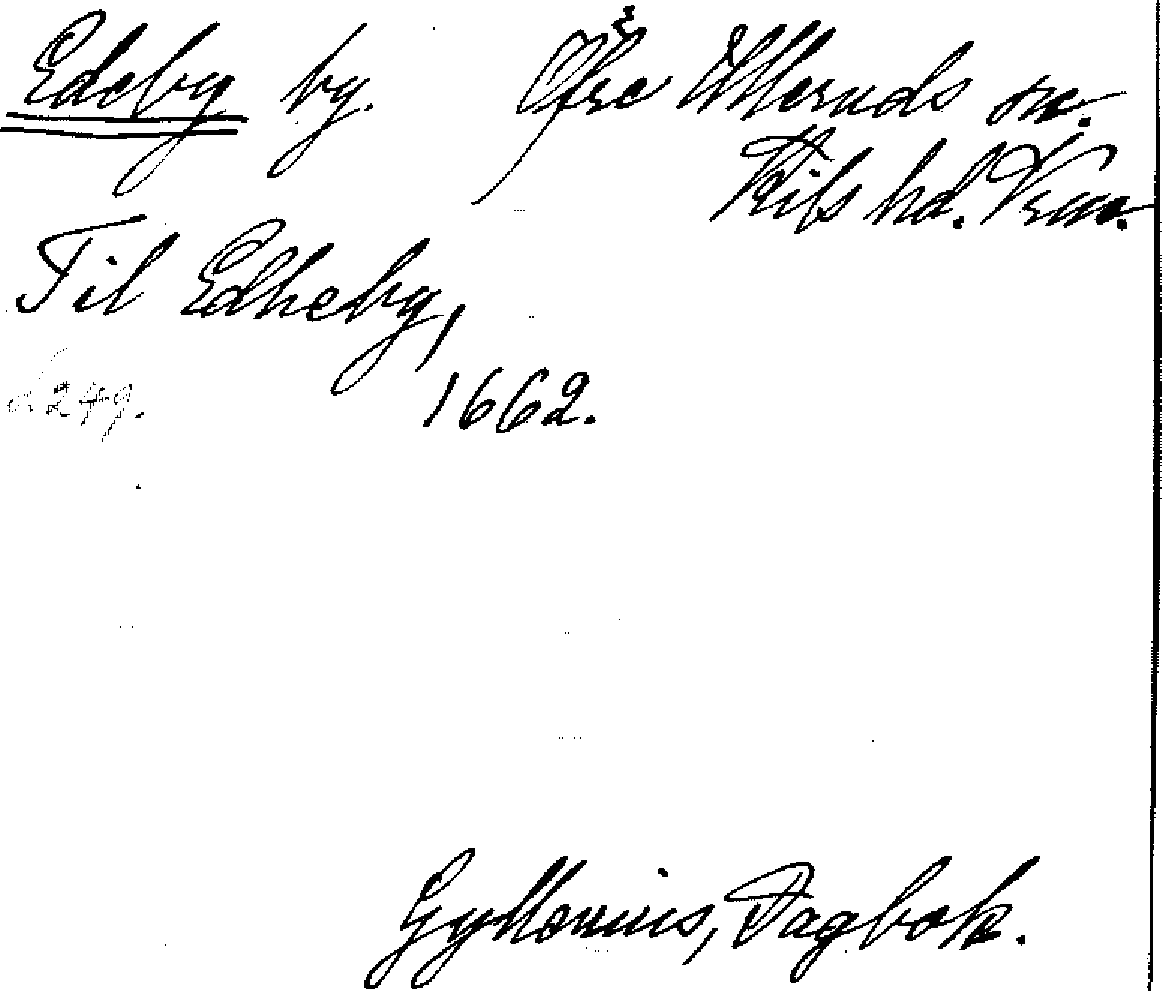 Edeby by. Öfre Ulleruds sn.
Kils hd. Vrm.
Til Edheby,
1662.
d 249.
Gyllenius, Dagbok.